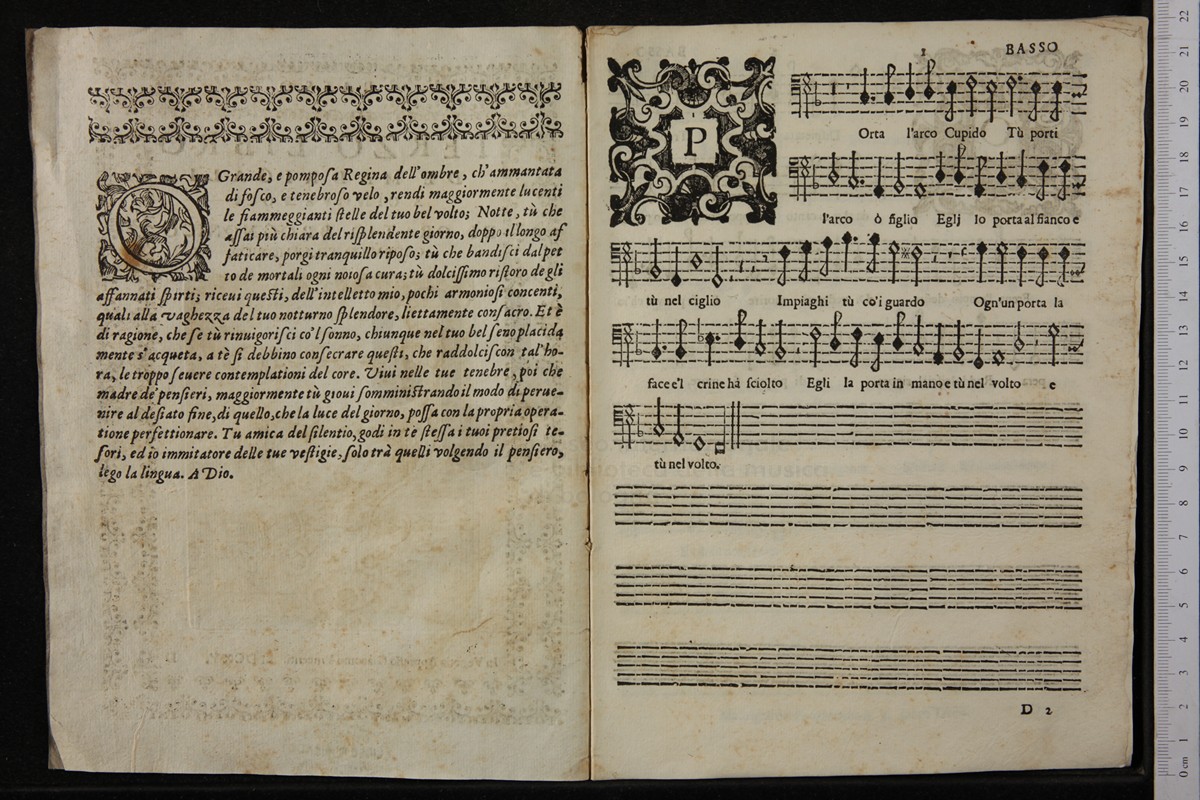 O Grande, e pomposa Regina dell'ombre, ch'ammantata
di fosco, e tenebroso velo, rendi maggiormente lucenti
le fiammeggianti stelle del tuo bel volto; Notte, tù che
assai più chiara del risplendente giorno, doppo il longo af
faticare, porgi tranquillo riposo; tù che bandisci dal pet
to de mortali ogni noiosa cura; tù dolcissimo ristoro de gli
affannati spirti; riceui questi, dell'intelletto mio, pochi armoniosi concenti,
quali alla vaghezza del tuo notturno splendore, liettamente consacro. Et è
di ragione, che se tù rinuigorisci co'l sonno, chiunque nel tuo bel seno placida
mente s'acqueta, a tè si debbino consecrare questi, che raddolciscon tal'ho-
ra, le troppo seuere contemplationi del core. Viui nelle tue tenebre, poi che
madre de' pensieri, maggiormente tù gioui somministrando il modo di perue-
nire al desiato fine, di quello, che la luce del giorno, possa con la propria opera-
tione perfettionare. Tu amica del silentio, godi in te stessa i tuoi pretiosi te-
sori, ed io immitatore delle tue vestigie, solo trà quelli volgendo il pensiero,
lego la lingua. A Dio.
1 BASSO
P Orta l'arco Cupido Tù porti
l'arco ò figlio Eglj lo porta al fianco e
tù nel ciglio Impiaghi tù co'i guardo Ogn'un porta la
face e'l crine hà sciolto Egli la porta in mano e tù nel volto e
tù nel volto.
D 2